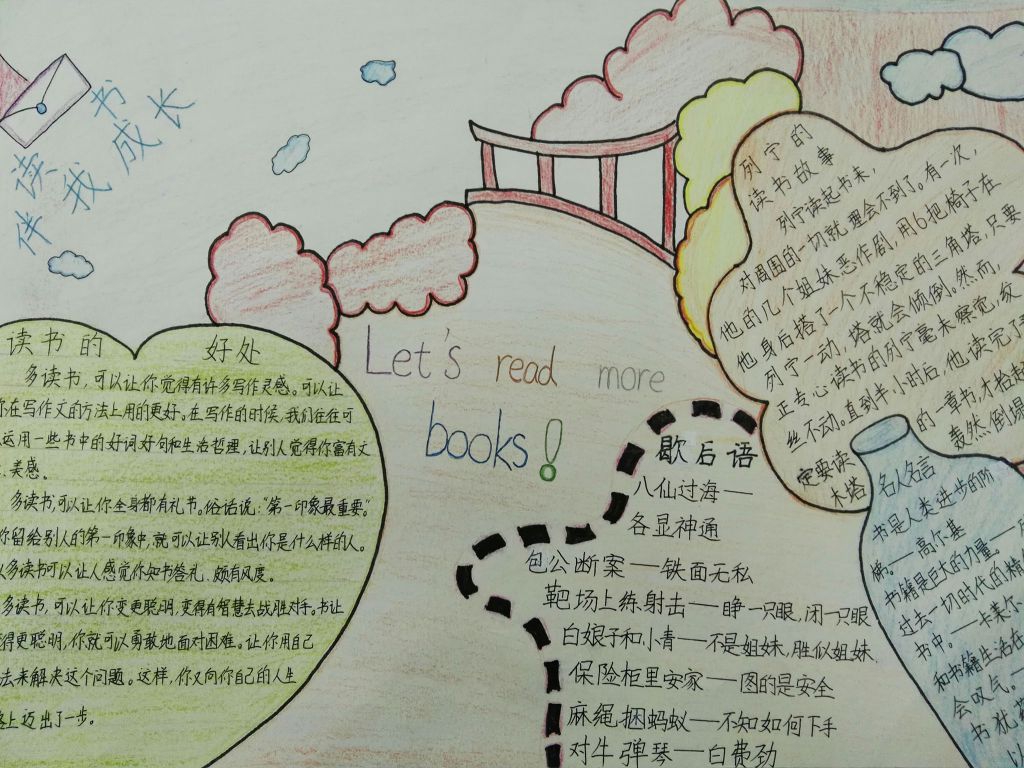 读书
伴我成长
读书的好处
多读书,可以让你觉得有许多写作灵感。可以让
你在写作文的方法上用的更好。在写作的时候,我们往往可
运用一些书中的好词好句和生活哲理,让别人觉得你富有文
、美感。
多读书,可以让你全身都有礼节。俗话说:“第一印象最重要。”
你留给别人的第一印象中,就可以让别人看出你是什么样的人。
多读书可以让人感觉你知书答礼、颇有风度。
多读书,可以让你变更聪明,变得有智慧去战胜对手。书让
得更聪明,你就可以勇敢地面对困难。让你用自己
去来解决这个问题。这样,你又向你自己的人生
路上迈出了一步。
Let's read more
books!
歇后语
八仙过海—
各显神通
包公断案—铁面无私
靶场上练射击—睁一只眼,闭一只眼
白娘子和小青—不是姐妹,胜似姐妹
保险柜里安家—图的是安全
麻绳捆蚂蚁—不知如何下手
对牛弹琴—白费劲
列宁的
读书故事
列宁读起书来,
对周围的一切就理会不到了。有一次,
他的几个姐妹恶作剧,用6把椅子在
他身后搭了一个不稳定的三角塔,只要
列宁一动,塔就会倾倒。然而,
正专心读书的列宁毫未察觉,纹
丝不动。直到半小时后,他读完了
定要读的一章书,才抬起
木塔轰然倒塌
名人名言
书是人类进步的阶
梯。—高尔基
书籍是巨大的力量。—
过去一切时代的精
书中。—卡莱尔
和书籍生活在
会叹气。—
书犹药
以